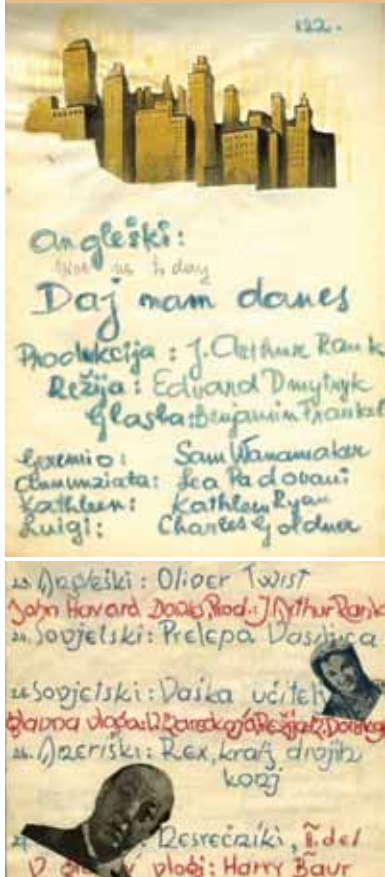 122.
Angleški:
us to day
Daj nam danes
Produkcija: J. Arthur Rank
Režija: Edward Dmytryk
Glasba: Benjamin Frankel
Geremio: Sam Wanamaker
Annunziata: Lea Padovani
Kathleen: Kathleen Ryan
Luigi: Charles Goldner
23. Angleški: Oliver Twist
John Havard Davies Prod.: J. Arthur Rank
24. Sovjetski: Prelepa Vasiljica
25. Sovjetski: Vaška učitelj
Glavna vloga: Režija: Donskoj
26. Ameriški: Rex, kralj divjih
konj
27. Nesrečniki, II. del
V vlogi: Harry Baur